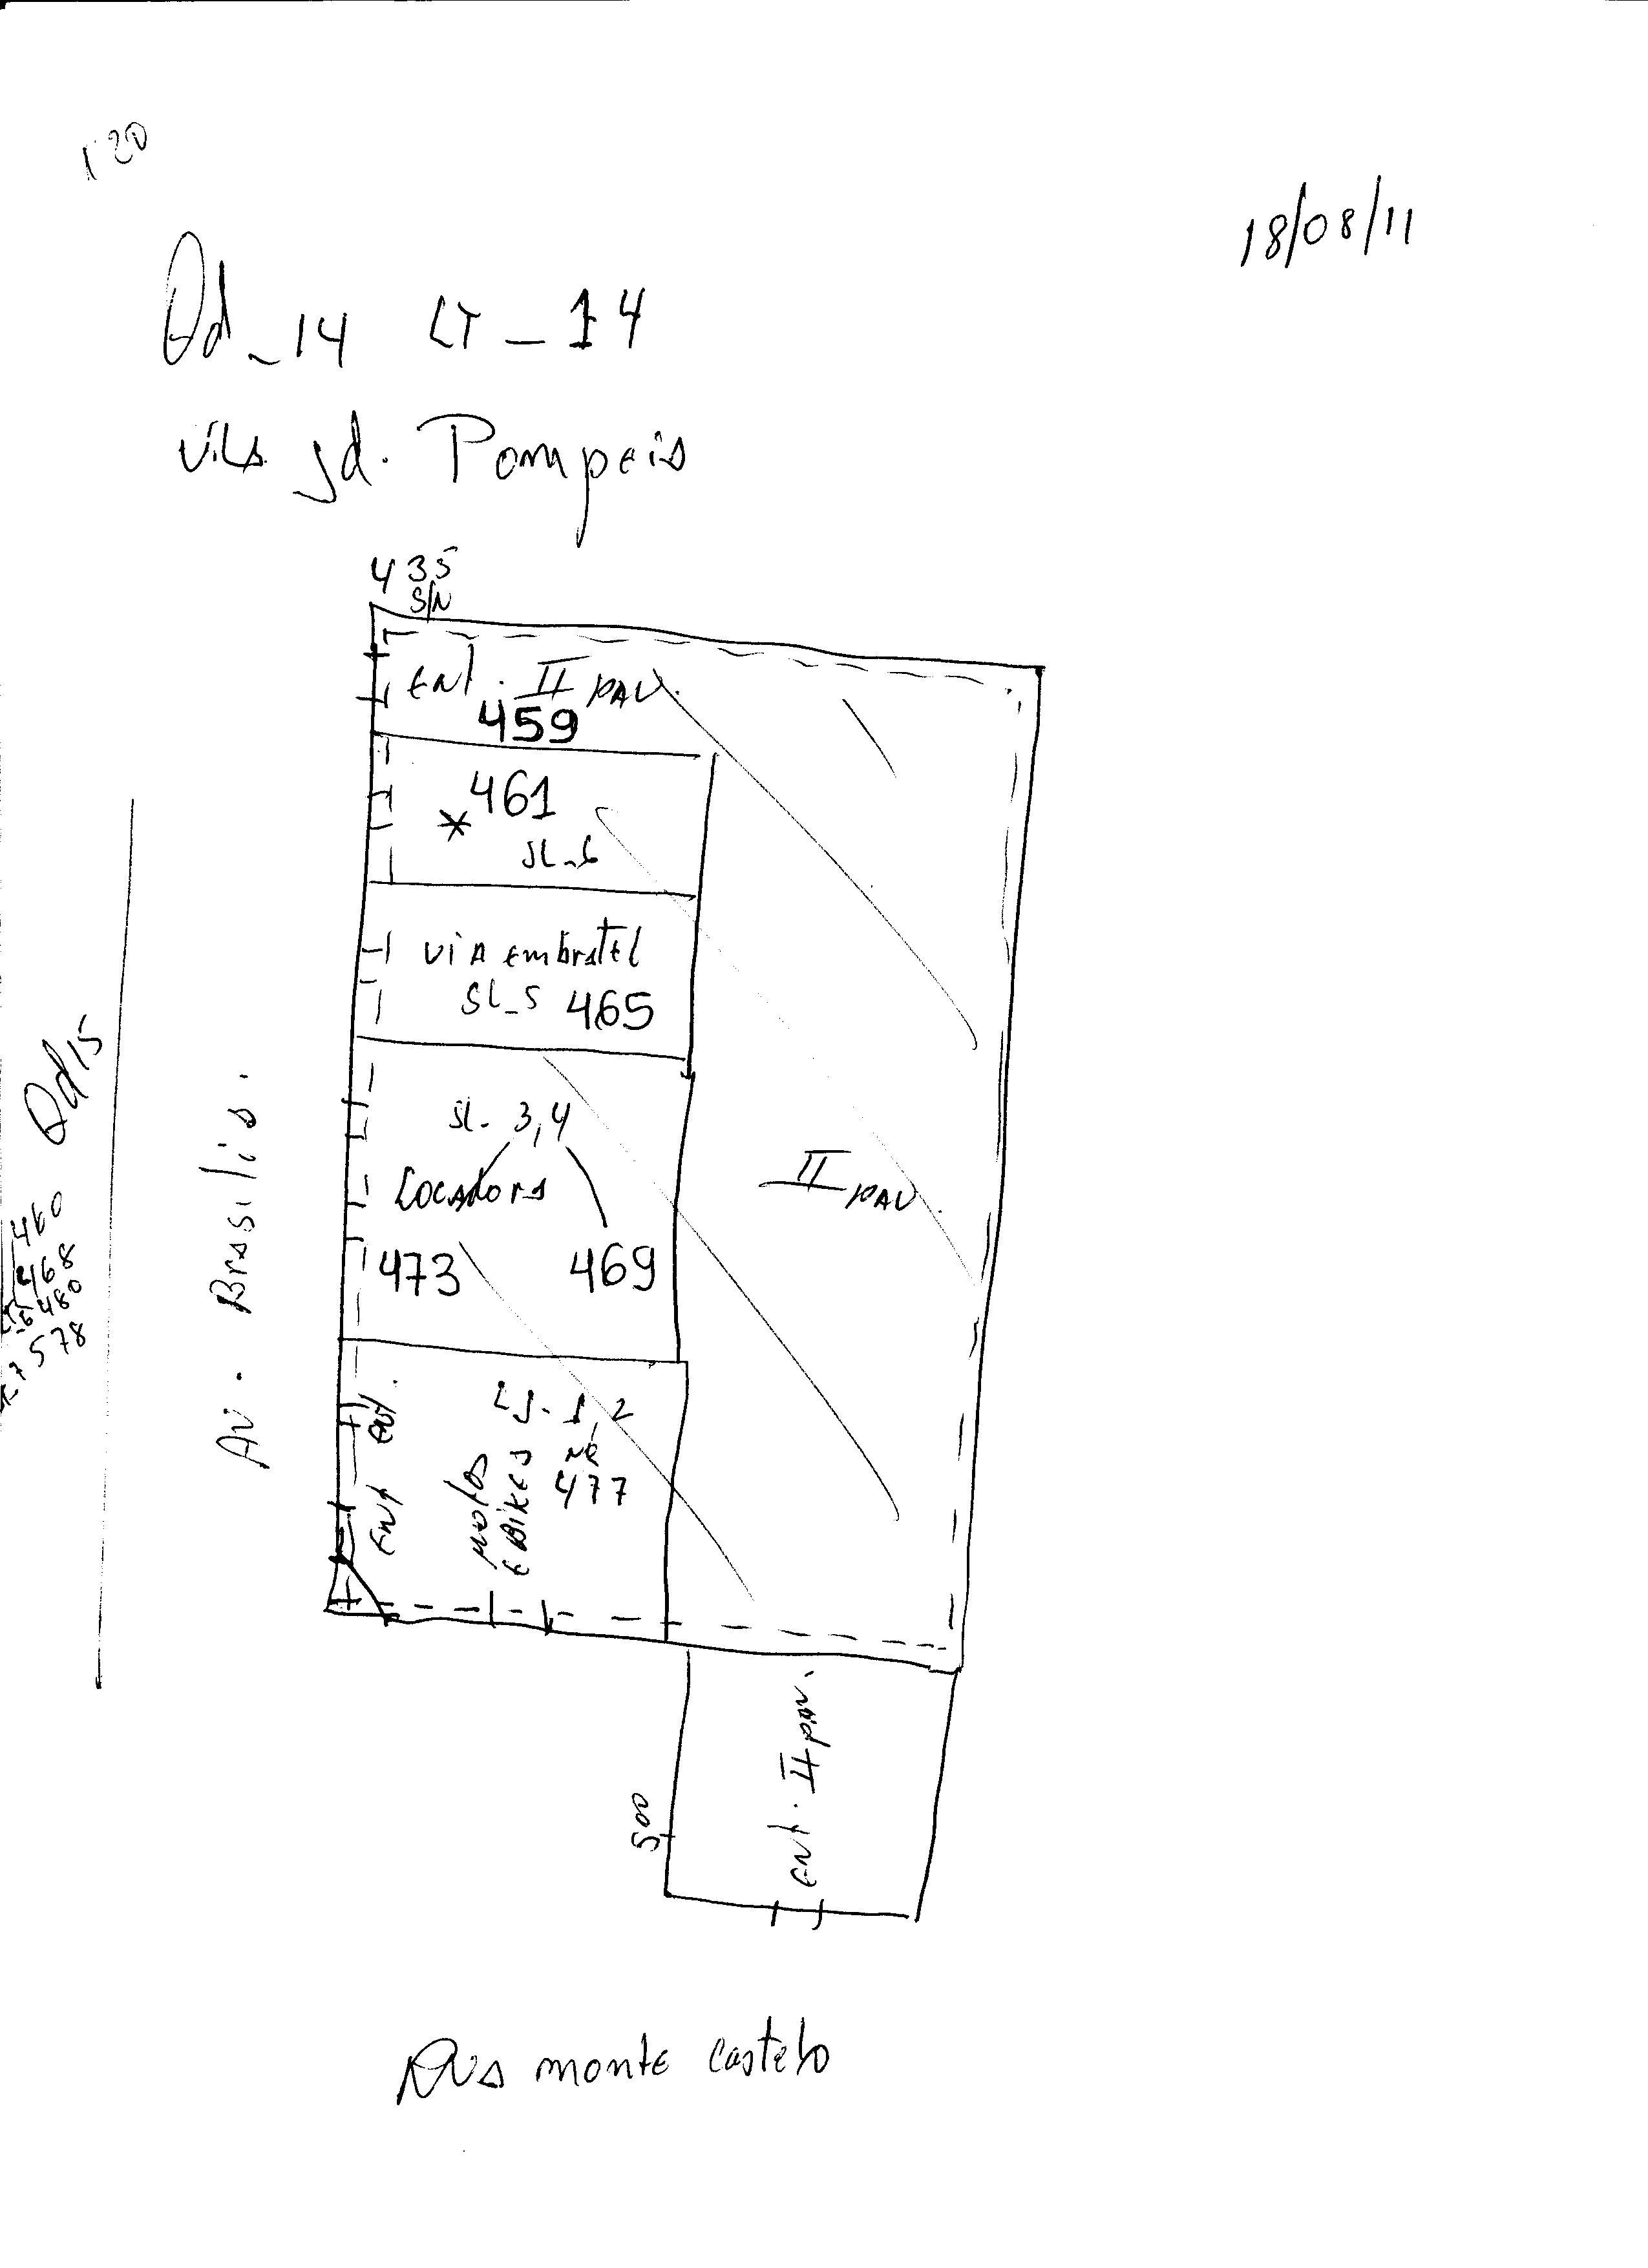 120
18/08/11
Qd_14 LT_14
vila Jd. Pompeia
435
S/N
ENT. II PAV.
459
461
* SL_6
VIA EmbratEl
SL_5 465
SL. 3,4
Locadora
473 469
II PAV.
LJ. 1,2
NR
477
MOTOS
E BIKES
ENT
ENT.
Av. Brasilia.
Qd 15
460
468
480
578
ENT. II PAV.
500
Rua montE castelo